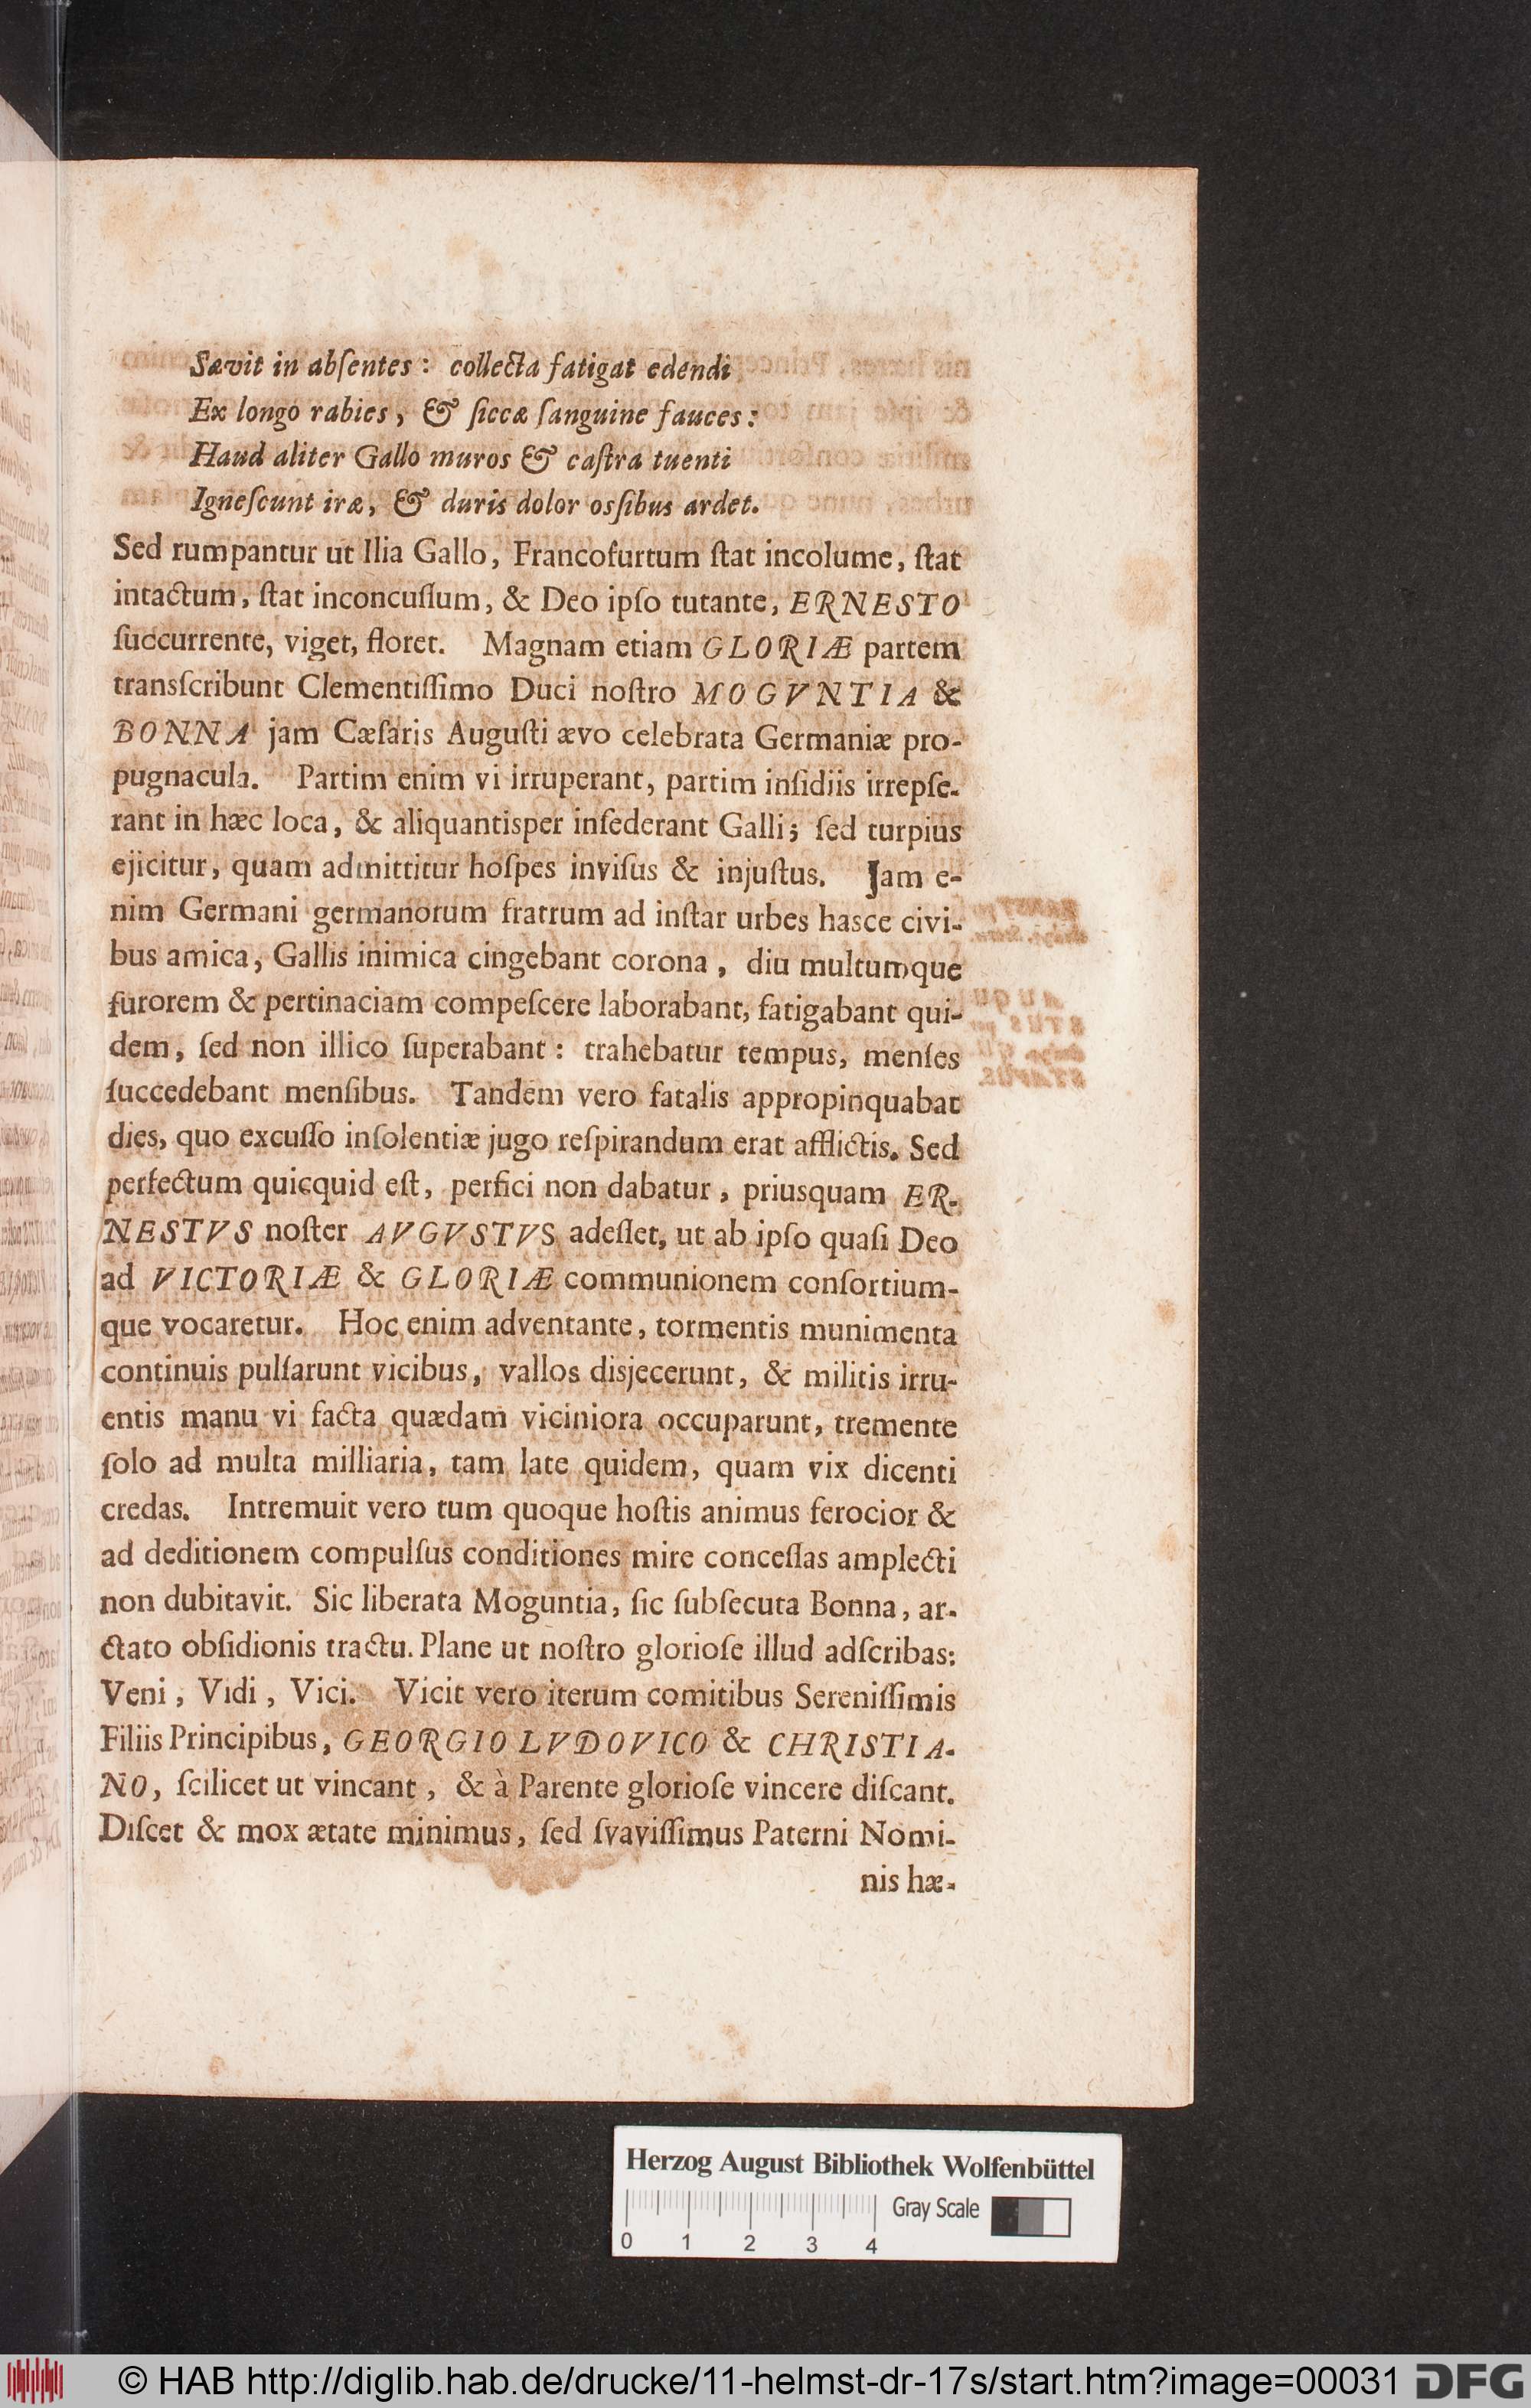 Sævit in abſentes: collecta fatigat edendi
Ex longo rabies, & ſiccæ ſanguine fauces:
Haud aliter Gallo muros & caſtra tuenti
Igneſcunt iræ, & duris dolor oſſibus ardet.
Sed rumpantur ut Ilia Gallo, Francofurtum ſtat incolume, ſtat
intactum, ſtat inconcuſſum, & Deo ipſo tutante, ERNESTO
ſuccurrente, viget, floret. Magnam etiam GLORIÆ partem
transſcribunt Clementiſſimo Duci noſtro MOGVNTIA &
BONNA jam Cæſaris Auguſti ævo celebrata Germaniæ pro-
pugnacula. Partim enim vi irruperant, partim inſidiis irrepſe-
rant in hæc loca, & aliquantisper inſederant Galli; ſed turpius
ejicitur, quam admittitur hoſpes inviſus & injuſtus. Jam e-
nim Germani germanorum fratrum ad inſtar urbes hasce civi-
bus amica, Gallis inimica cingebant corona, diu multumque
furorem & pertinaciam compeſcere laborabant, fatigabant qui-
dem, ſed non illico ſuperabant: trahebatur tempus, menſes
ſuccedebant menſibus. Tandem vero fatalis appropinquabat
dies, quo excuſſo inſolentiæ jugo reſpirandum erat afflictis. Sed
perfectum quicquid eſt, perfici non dabatur, priusquam ER-
NESTVS noſter AVGVSTVS adeſſet, ut ab ipſo quaſi Deo
ad VICTORIÆ & GLORIÆ communionem conſortium-
que vocaretur. Hoc enim adventante, tormentis munimenta
continuis pulſarunt vicibus, vallos disjecerunt, & militis irru-
entis manu vi facta quædam viciniora occuparunt, tremente
ſolo ad multa milliaria, tam late quidem, quam vix dicenti
credas. Intremuit vero tum quoque hoſtis animus ferocior &
ad deditionem compulſus conditiones mire conceſſas amplecti
non dubitavit. Sic liberata Moguntia, ſic ſubſecuta Bonna, ar-
ctato obſidionis tractu. Plane ut noſtro glorioſe illud adſcribas:
Veni, Vidi, Vici. Vicit vero iterum comitibus Sereniſſimis
Filiis Principibus, GEORGIO LVDOVICO & CHRISTIA-
NO, ſcilicet ut vincant, & à Parente glorioſe vincere diſcant.
Diſcet & mox ætate minimus, ſed ſvaviſſimus Paterni Nomi-
nis hæ-
Herzog August Bibliothek Wolfenbüttel
Gray Scale
0 1 2 3 4
© HAB http://diglib.hab.de/drucke/11-helmst-dr-17s/start.htm?image=00031 DFG